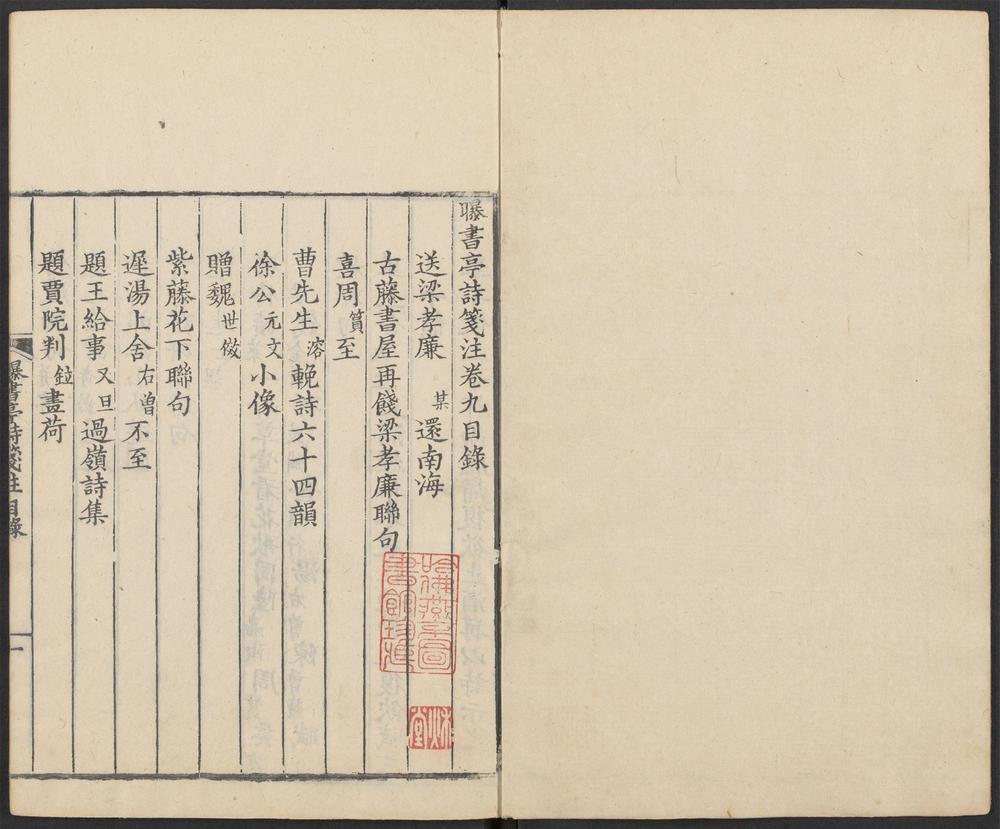 曝書亭詩箋注卷九目錄
送梁孝廉某還南海
古藤書屋再餞梁孝廉聯句
喜周篔至
曹先生溶輓詩六十四韻
徐公元文小像
贈魏世傚
紫藤花下聯句
遲湯上舍右曾不至
題王給事又旦過嶺詩集
題賈院判鉝畫荷
曝書亭詩箋注 目錄
一
哈佛燕京圖書館珍藏